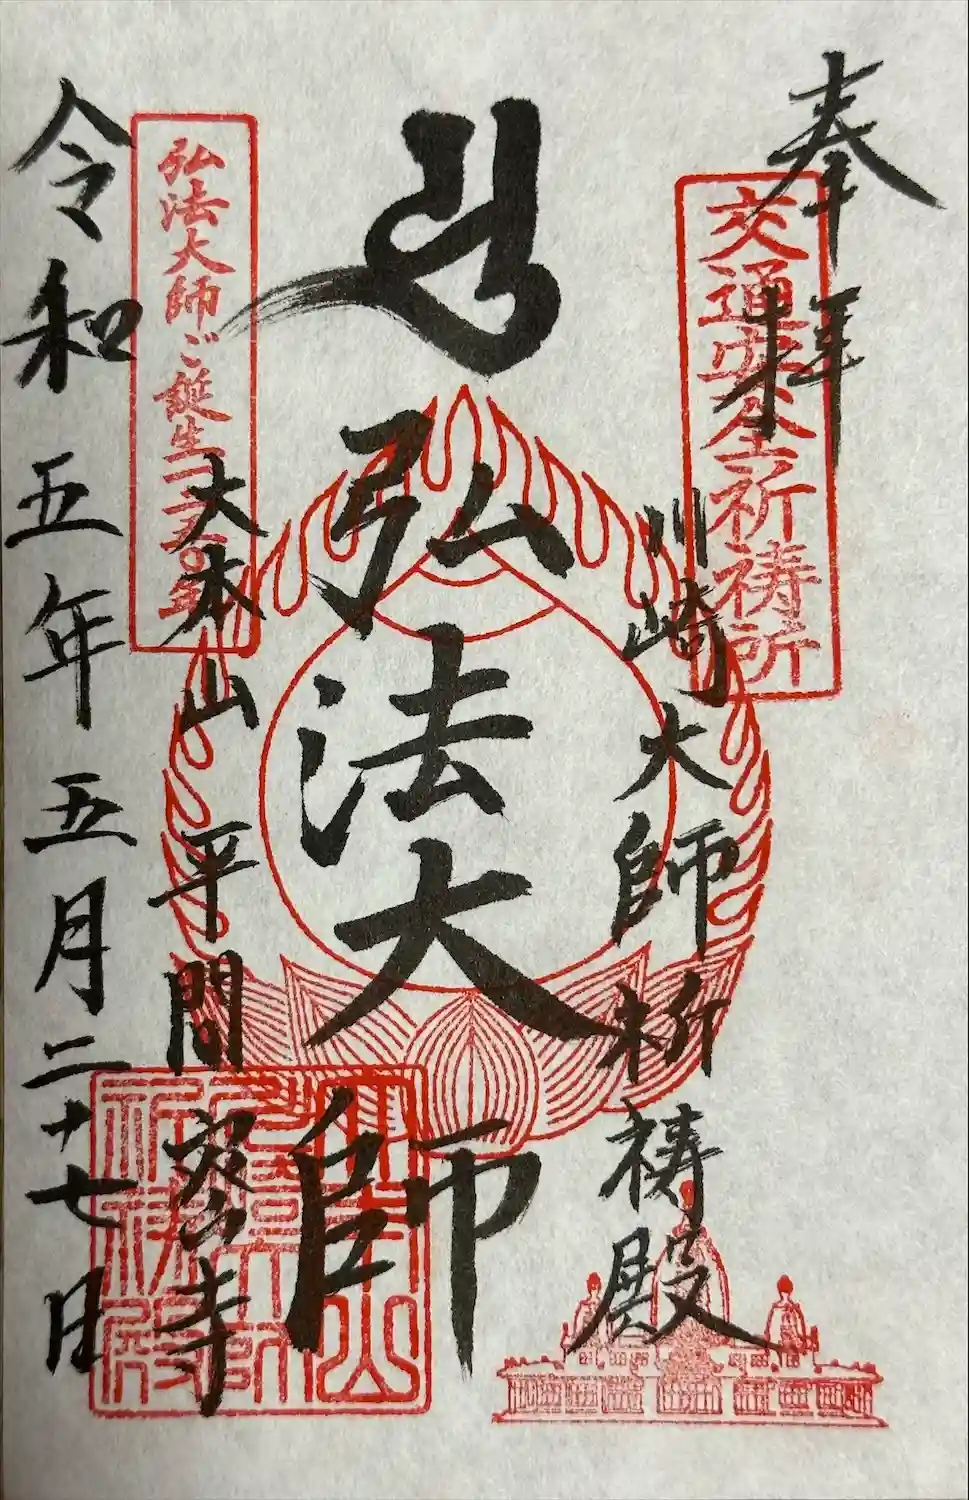 奉拝
交通安全祈祷所
川崎大師祈祷殿
弘法大師
大本山平間密寺
弘法大師ご誕生一二五〇年
令和五年五月二十七日